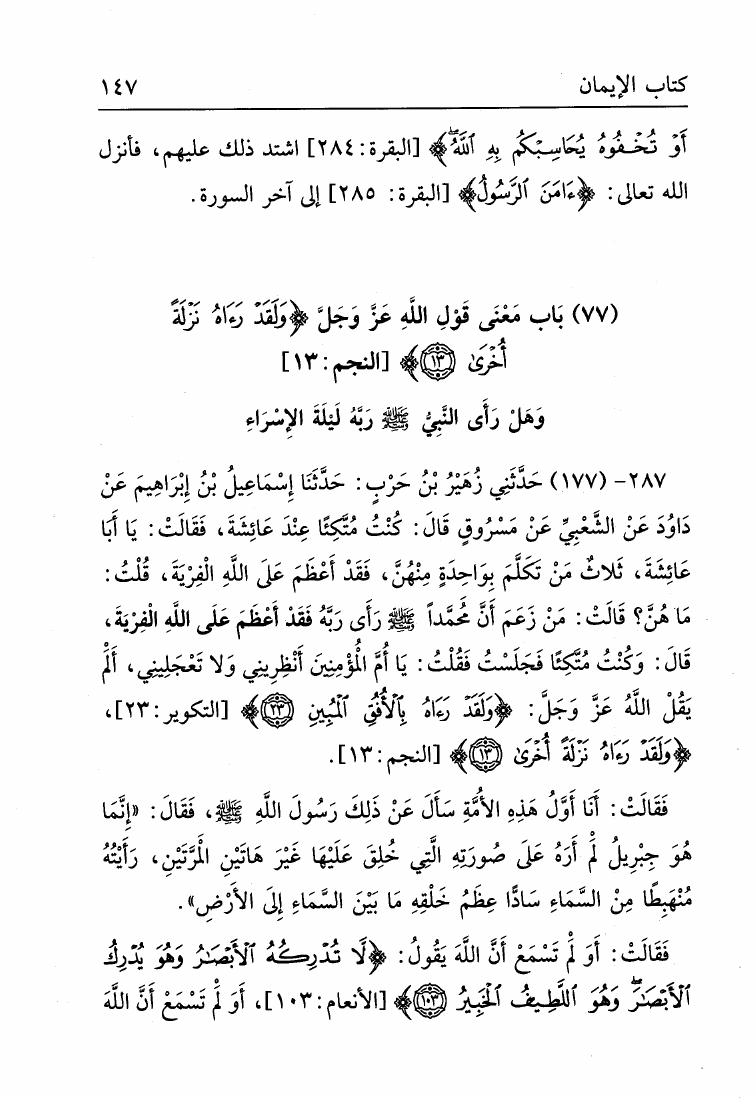 كتاب الإيمان ١٤٧
أَوْ تُخْفُوهُ يُحَاسِبْكُم بِهِ ٱللَّهُۖ﴾ [البقرة: ٢٨٤] اشتد ذلك عليهم، فأنزل
الله تعالى: ﴿ءَامَنَ ٱلرَّسُولُ﴾ [البقرة: ٢٨٥] إلى آخر السورة.
(٧٧) بَاب مَعْنَى قَوْلِ اللَّهِ عَزَّ وَجَلَّ ﴿وَلَقَدْ رَءَاهُ نَزْلَةً
أُخْرَىٰ ۝١٣﴾ [النجم: ١٣]
وَهَلْ رَأَى النَّبِيُّ ﷺ رَبَّهُ لَيْلَةَ الإِسْرَاءِ
٢٨٧- (١٧٧) حَدَّثَنِي زُهَيْرُ بْنُ حَرْبٍ: حَدَّثَنَا إِسْمَاعِيلُ بْنُ إِبْرَاهِيمَ عَنْ
دَاوُدَ عَنْ الشَّعْبِيِّ عَنْ مَسْرُوقٍ قَالَ: كُنْتُ مُتَّكِئًا عِنْدَ عَائِشَةَ، فَقَالَتْ: يَا أَبَا
عَائِشَةَ، ثَلاثٌ مَنْ تَكَلَّمَ بِوَاحِدَةٍ مِنْهُنَّ، فَقَدْ أَعْظَمَ عَلَى اللَّهِ الْفِرْيَةَ، قُلْتُ:
مَا هُنَّ؟ قَالَتْ: مَنْ زَعَمَ أَنَّ مُحَمَّداً ﷺ رَأَى رَبَّهُ فَقَدْ أَعْظَمَ عَلَى اللَّهِ الْفِرْيَةَ،
قَالَ: وَكُنْتُ مُتَّكِئًا فَجَلَسْتُ فَقُلْتُ: يَا أُمَّ الْمُؤْمِنِينَ أَنْظِرِينِي وَلا تَعْجَلِينِي، أَلَمْ
يَقُلْ اللَّهُ عَزَّ وَجَلَّ: ﴿وَلَقَدْ رَءَاهُ بِٱلْأُفُقِ ٱلْمُبِينِ ۝٢٣﴾ [التكوير: ٢٣]،
﴿وَلَقَدْ رَءَاهُ نَزْلَةً أُخْرَىٰ ۝١٣﴾ [النجم: ١٣].
فَقَالَتْ: أَنَا أَوَّلُ هَذِهِ الأُمَّةِ سَأَلَ عَنْ ذَلِكَ رَسُولَ اللَّهِ ﷺ، فَقَالَ: «إِنَّمَا
هُوَ جِبْرِيلُ لَمْ أَرَهُ عَلَى صُورَتِهِ الَّتِي خُلِقَ عَلَيْهَا غَيْرَ هَاتَيْنِ الْمَرَّتَيْنِ، رَأَيْتُهُ
مُنْهَبِطًا مِنْ السَّمَاءِ سَادًّا عِظَمُ خَلْقِهِ مَا بَيْنَ السَّمَاءِ إِلَى الأَرْضِ».
فَقَالَتْ: أَوَ لَمْ تَسْمَعْ أَنَّ اللَّهَ يَقُولُ: ﴿لَّا تُدْرِكُهُ ٱلْأَبْصَٰرُ وَهُوَ يُدْرِكُ
ٱلْأَبْصَٰرَۖ وَهُوَ ٱللَّطِيفُ ٱلْخَبِيرُ ۝١٠٣﴾ [الأنعام: ١٠٣]، أَوَ لَمْ تَسْمَعْ أَنَّ اللَّهَ